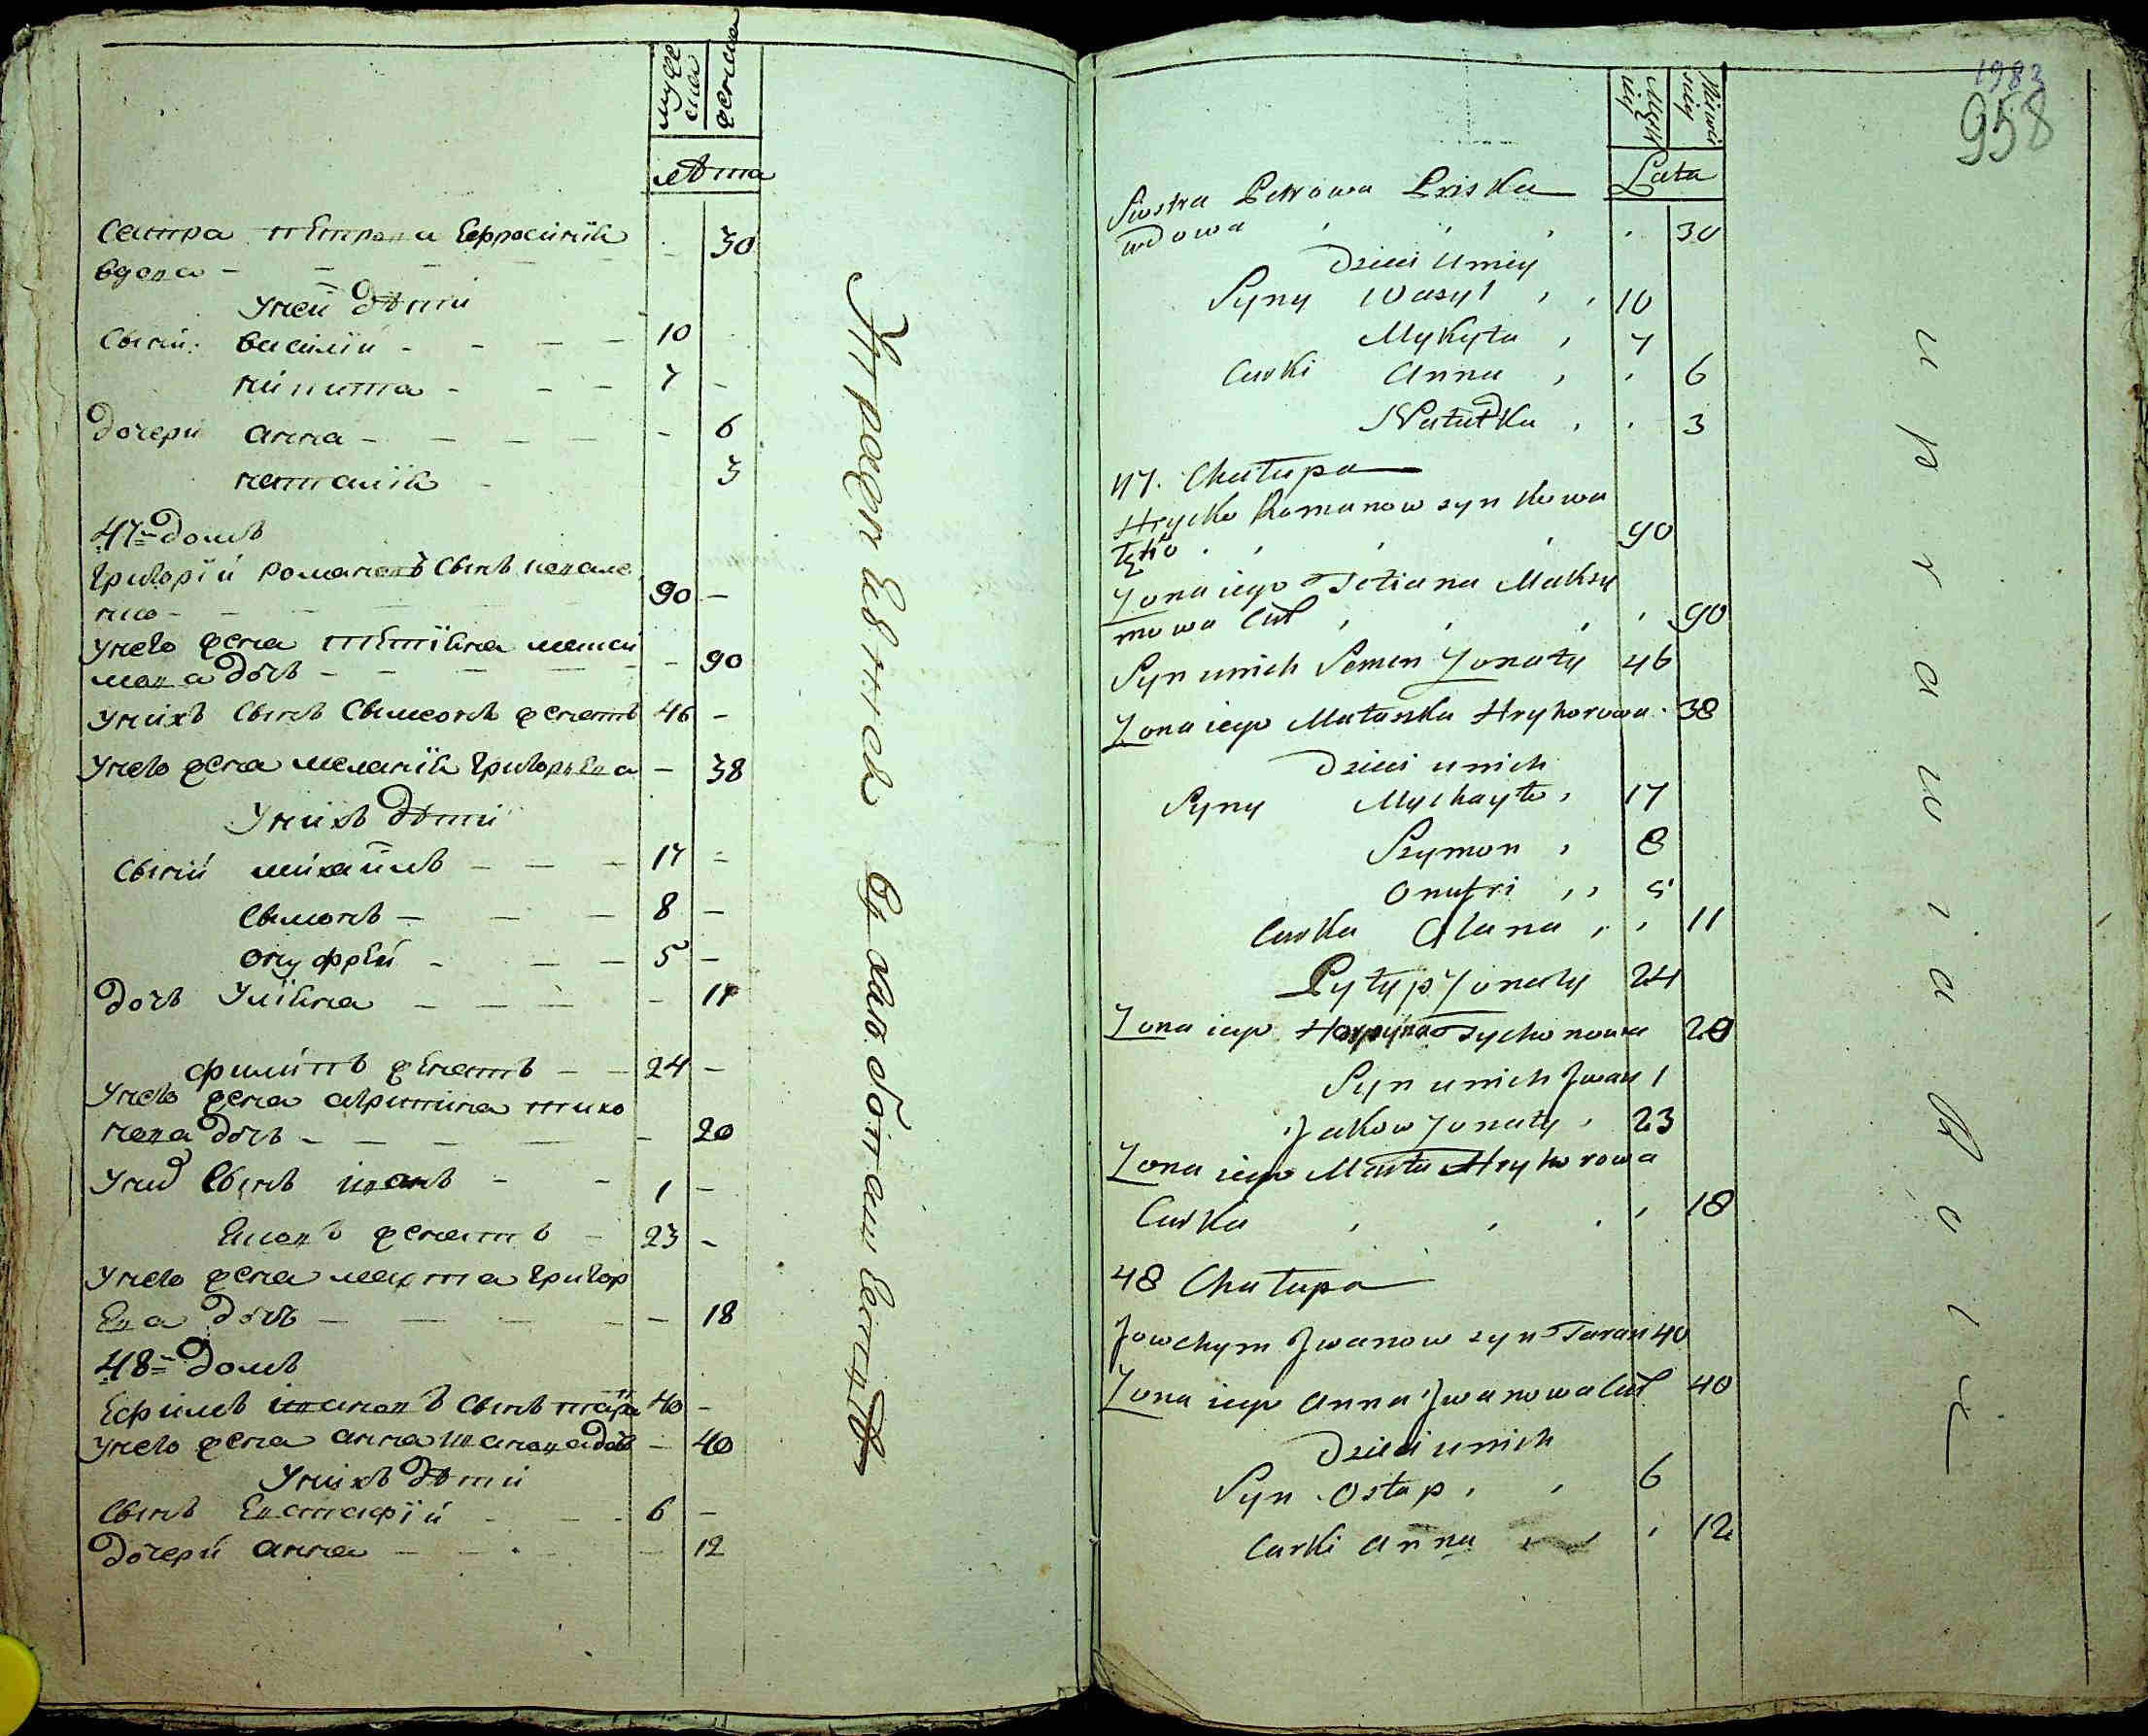 мужеска
женска
лѣта
Сестра петрова Ефросинїя
вдова - - - - - - 30
Унеи дѣти
Сыни: василїи - - - - 10 -
никита - - - 7 -
дочери анна - - - - - 6
наталїя - 3
47=домъ
Григорїи романовъ Сынъ ковале
нко - - - - 90 -
Унего жена тетїяна макси
мова дочь - - - - - 90
Унихъ Сынъ Сѵмеонъ женатъ 46 -
Унего жена меланїя Григорьева - 38
Унихъ дѣти
Сыни михаилъ - - - 17 -
Сѵмонъ - - - 8 -
онуфрей - - - 5 -
дочь Улїяна - - - - 11
филипъ женатъ - - 24 -
Унего жена агрипина тихо
нова дочь - - - - - 20
Уних Сынъ иванъ - - 1 -
Яковъ женатъ - 23 -
Унего жена марта Григор
Ева дочь - - - - - 18
48=домъ
Ефимъ ивановъ Сынъ таран 40 -
Унего жена анна Иванова дочь - 40
Унихъ дѣти
Сынъ Евстафїи - - - 6 -
дочери анна - - - - 12
1983
958
Męsk
iey
Żeńsk
iey
Lata
Siostra Petrowa Priska
wdowa , , , . 30
Dzieci uniey
Syny Wasyl , , 10
Mykyta , 7
Curki Anna , . 6
Natałka , . 3
47. Chałupa
Hrycko Romanow syn Kowa
lęko . , , , 90
Zona iego Tetiana Maksy
mowa Cur , , , . 90
Syn unich Semen Zonaty 46
Zona iego Małaszka Hryhorowa . 38
Dzieci unich
Syny Mychayło , 17
Szymon , 8
Onufri , , 5
Curka Ulana , , 11
Pyłyp Zonaty 24
Zona iego Horpyna Tychonowa 20
Syn unich Jwan 1
Jakow Zonaty , 23
Zona iego Marta Hryhorowa
Curka , , . , 18
48 Chałupa
Jowchym Jwanow syn Taran 40
Zona iego Anna Jwanowa Cur 40
Dzieci unich
Syn Ostap , , 6
Curki Anna , , , 12